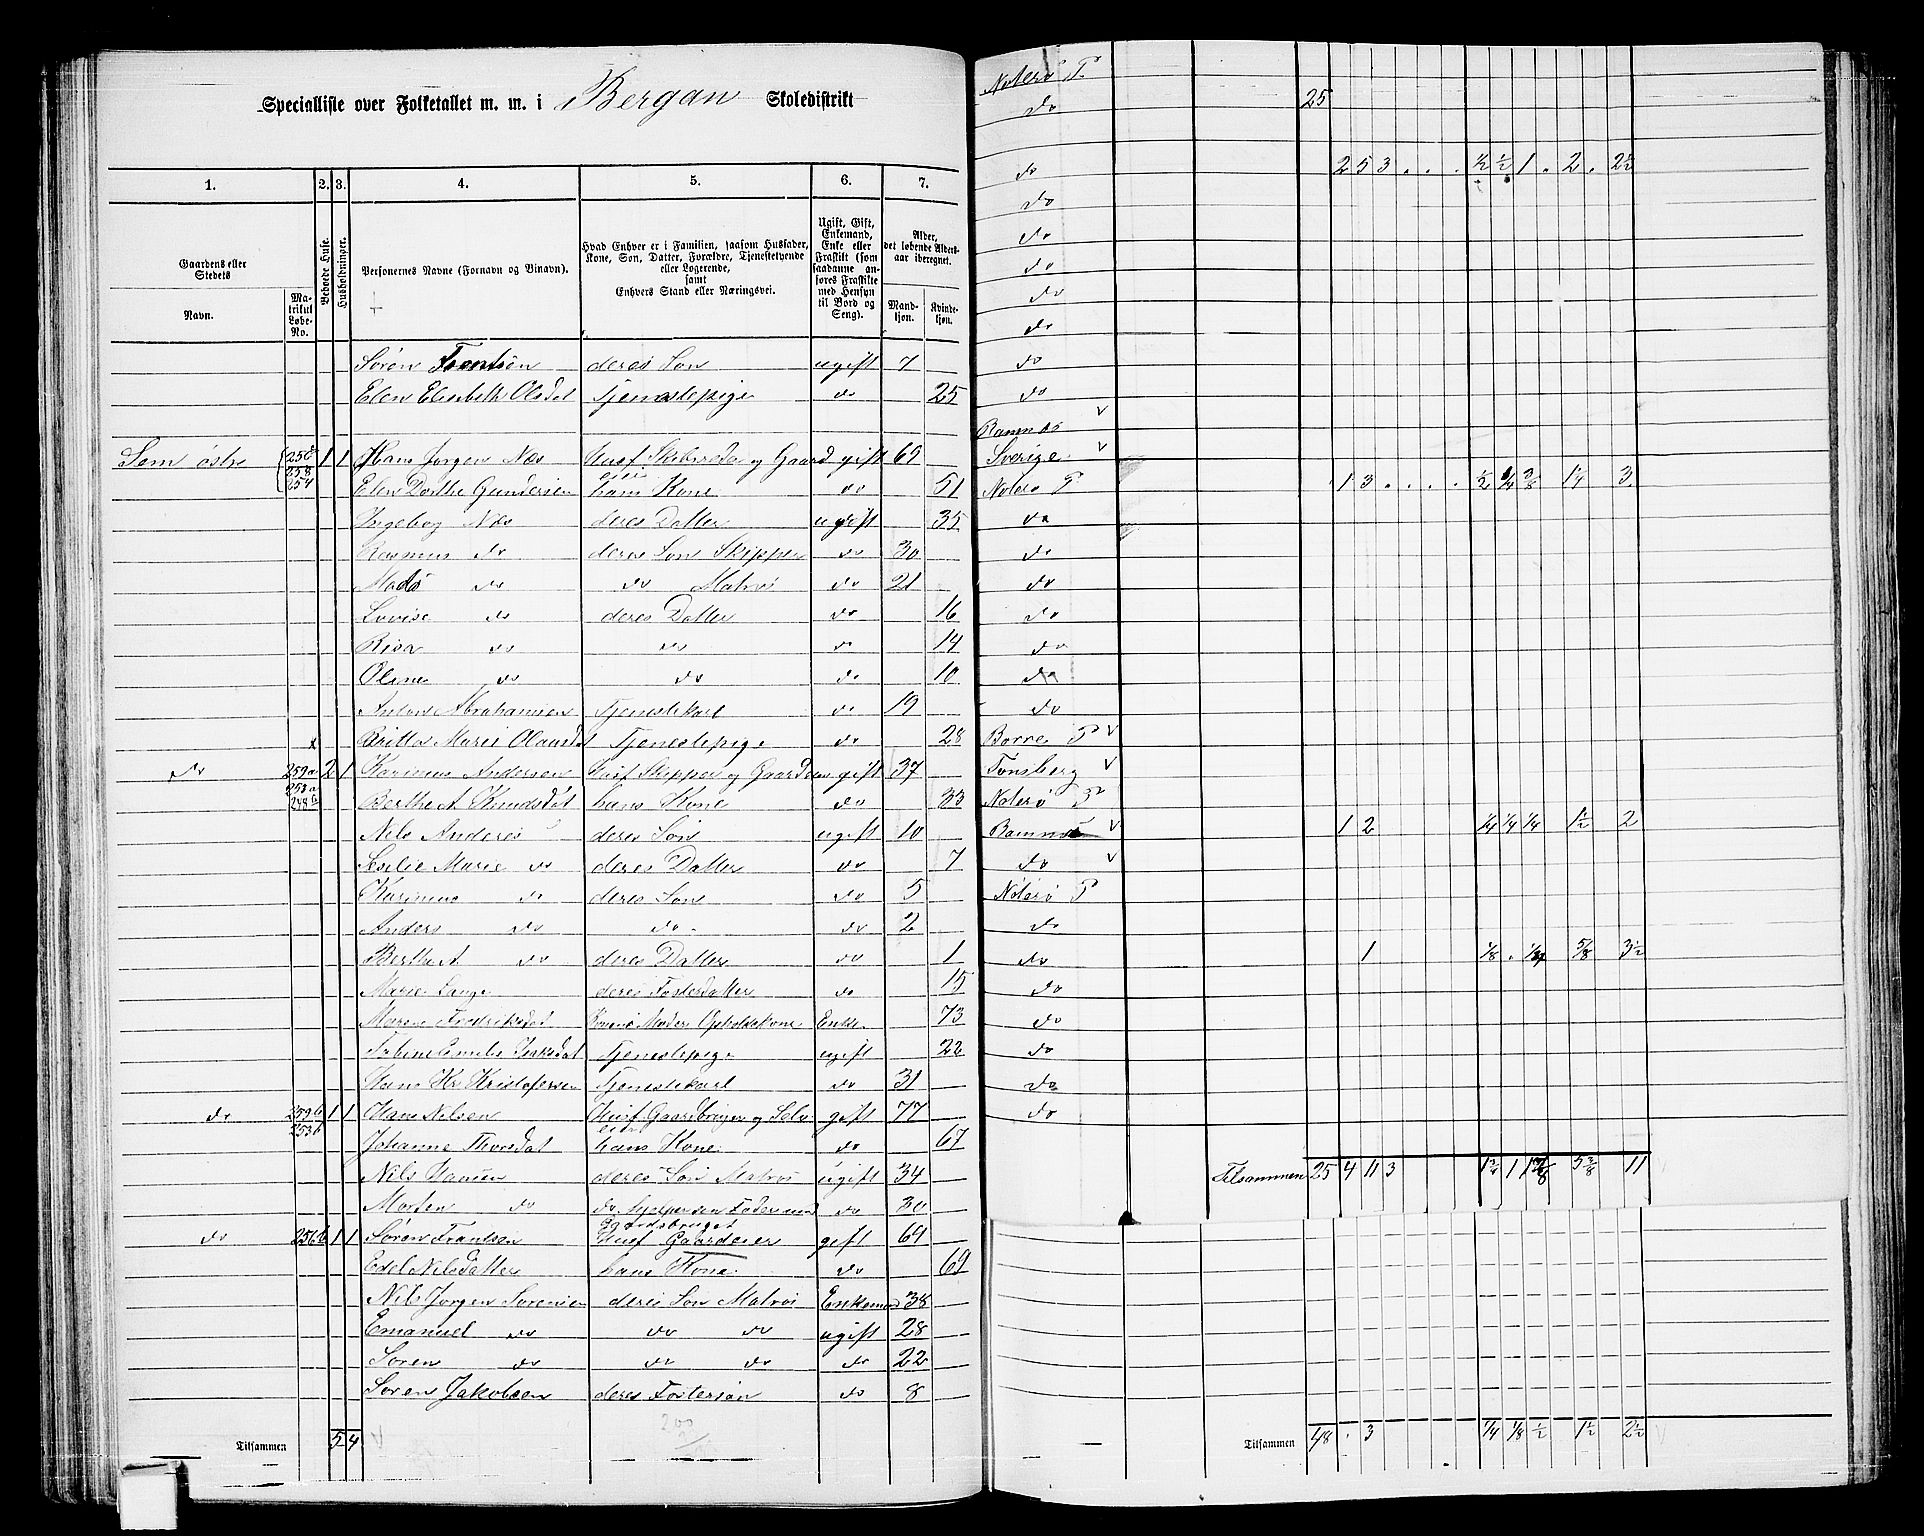 Specialliste over Folketallet m. m. i Bergan Skoledistrikt
1. 2. 3. 4. 5. 6. 7.
Gaardens eller Stedets
Navn.
Matrikul Løbe-No.
Beboede Huse.
Husholdninger.
Personernes Navne (Fornavn og Binavn).
Hvad Enhver er i Familien, saasom Husfader, Kone, Søn, Datter, Forældre, Tjenestetyende eller Logerende, samt Enhvers Stand eller Næringsvei.
Ugift, Gift, Enkemand, Enke eller Fraskilt (som saadanne anføres Fraskilte med Hensyn til Bord og Seng).
Alder, det løbende Aldersaar iberegnet.
Mandkjøn. Kvindekjøn.
Søren Frantsen deres Søn ugift 7
Elen Elisabeth Olsdat Tjenestepige do 25
Sem østre 256 258 254 1 1 Hans Jørgen Næs Husf Skibsreder og Gaard eier gift 69
Elen Dorthe Gundersen hans Kone do 51
Ingebog Næs deres Datter ugift 35
Rasmus do deres Søn Skipper do 30
Mads do do Matros do 21
Lovise do deres Datter do 16
Risa do do do 14
Oline do do do 10
Anton Abrahamsen Tjenestekarl do 19
x Britta Marie Olausdt Tjenestepige do 28
do 259a 253a 248b 2 1 Karinius Andersen Husf Skipper og Gaardeier gift 37
Berthe A Knudsdat hans Kone do 33
Nils Anders deres Søn ugift 10
Sesilie Marie do deres Datter do 7
Karinius do deres Søn do 5
Anders do do do 2
Bertha A do deres Datter do 1
Marie Lange deres Fosterdatter do 15
Maren Fredriksdat Konens Moder Opholdskone Enke 73
Sabine Emilie Isaksdat Tjenestepige ugift 22
Hans Kr Kristofersen Tjenestekarl do 31
do 259b 253b 1 1 Hans Nilsen Husf Gaardbruger og Selveier gift 77
Johanne Thorsdat hans Kone do 67
Nils Hansen deres Søn Matros ugift 34
Morten do do hjelpersin Fader med Gaardsbruget do 30
do 256b 1 1 Søren Frantsen Husf Gaardeier gift 69
Edel Nilsdatter hans Kone do 69
Nils Jørgen Sørensen deres Søn Matros Enkemand 38
Emanuel do do do ugift 28
Søren do do do do 22
Søren Jakobsen deres Fostersøn do 8
Tilsammen 5 4
Noterø P
do 25
do 2 5 3 . . . ½ ½ 1 . 2 . 2½
do
do
do
do
do
do
do
Ramnæs v
Sverige v
Noterø P 1 3 . . . . ½ ¼ ⅜ 1¼ 3
do
do
do
do
do
do
do
Borre P v
Tønsberg v
Noterø P
Ramnæs v 1 2 ¼ ¼ ¼ 1½ 2
do v
Noterø P
do
do 1 ⅛ . ¼ ⅝ 3½
do
do
do
do
do
Tilsammen 25 4 11 3 1¾ 1 1⅜ 5⅜ 11
Tilsammen 48 . 3 ¼ ⅛ ½ 1½ 2½